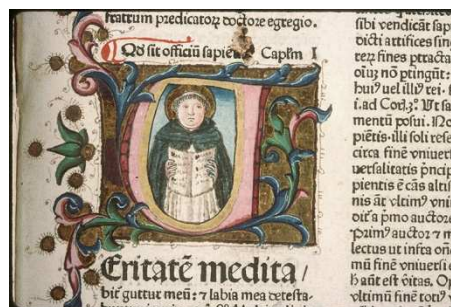 fratrum predicatoꝝ doctore egregio.
Qđ sit officiū sapiētis Capłm I
Eritatē medita /
bit᷑ guttur meū: ⁊ labia mea detesta
sibi vendicāt sap
dicti artifices sin
fines
no ptingūt:
huiꝰ uel illiꝰ rei.
i.ad Cor.3.° Ut sa
mentū posui. No
pietis. illi soli rese
circa finē vniuers
uersalitatis pncip
pientis ē cās altis
nis āt vltimꝰ vni
a pmo auctore
primꝰ auctor ⁊ m
lectus ut infra
mū finē vniuersi
h aūt est vitas.
vltimū finē toti